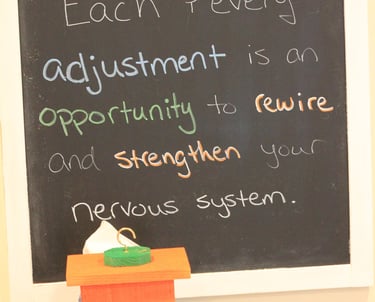 Each & every
adjustment is an
opportunity to rewire
and strengthen your
nervous system.